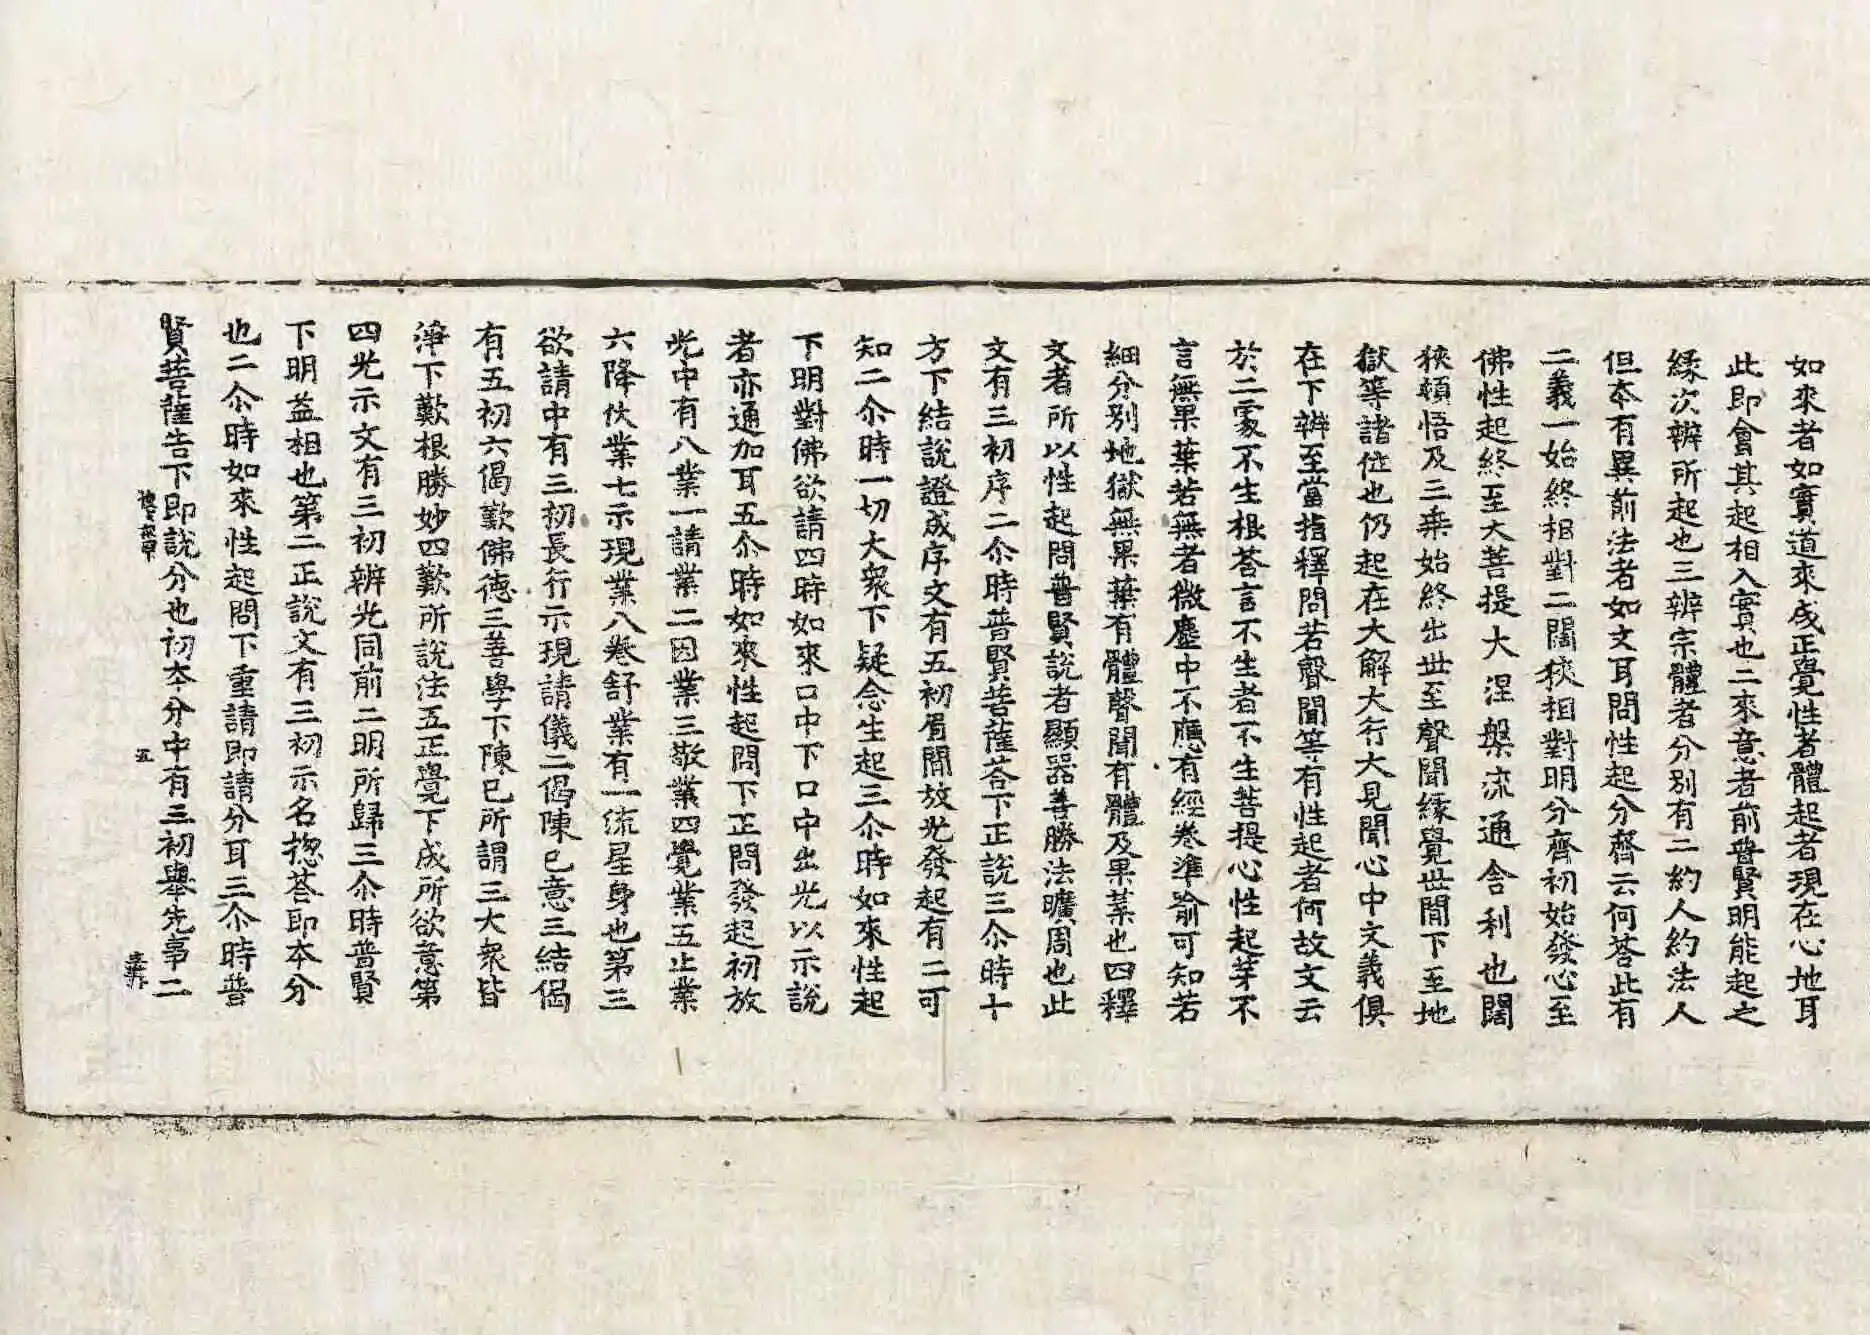 如來者如實道來成正覺性者體起者現在心地耳
此即會其起相入實也二來意者前普賢明能起之
緣次辨所起也三辨宗體者分別有二約人約法人
但本有異前法者如文耳問性起分齊云何荅此有
二義一始終相對二闊狹相對明分齊初始發心至
佛性起終至大菩提大涅槃流通舍利也闊
狹頓悟及三乘始終出世至聲聞緣覺世間下至地
獄等諸位也仍起在大解大行大見聞心中文義俱
在下辨至當指釋問若聲聞等有性起者何故文云
於二處不生根荅言不生者不生菩提心性起芽不
言無果葉若無者微塵中不應有經卷準喻可知若
細分別地獄無果葉有體聲聞有體及果葉也四釋
文者所以性起問普賢說者顯器善勝法曠周也此
文有三初序二尒時普賢菩薩荅下正說三尒時十
方下結說證成序文有五初眉間放光發起有二可
知二尒時一切大衆下疑念生起三尒時如來性起
下明對佛欲請四時如來口中下口中出光以示說
者亦通加耳五尒時如來性起問下正問發起初放
光中有八業一請業二因業三敬業四覺業五止業
六降伏業七示現業八卷舒業有一流星身也第三
欲請中有三初長行示現請儀二偈陳已意三結偈
有五初六偈歎佛德三善學下陳已所謂三大衆皆
淨下歎根勝妙四歎所說法五正覺下成所欲意第
四光示文有三初辨光同前二明所歸三尒時普賢
下明益相也第二正說文有三初示名揔荅即本分
也二尒時如來性起問下重請即請分耳三尒時普
賢菩薩告下即說分也初本分中有三初舉先事二
五